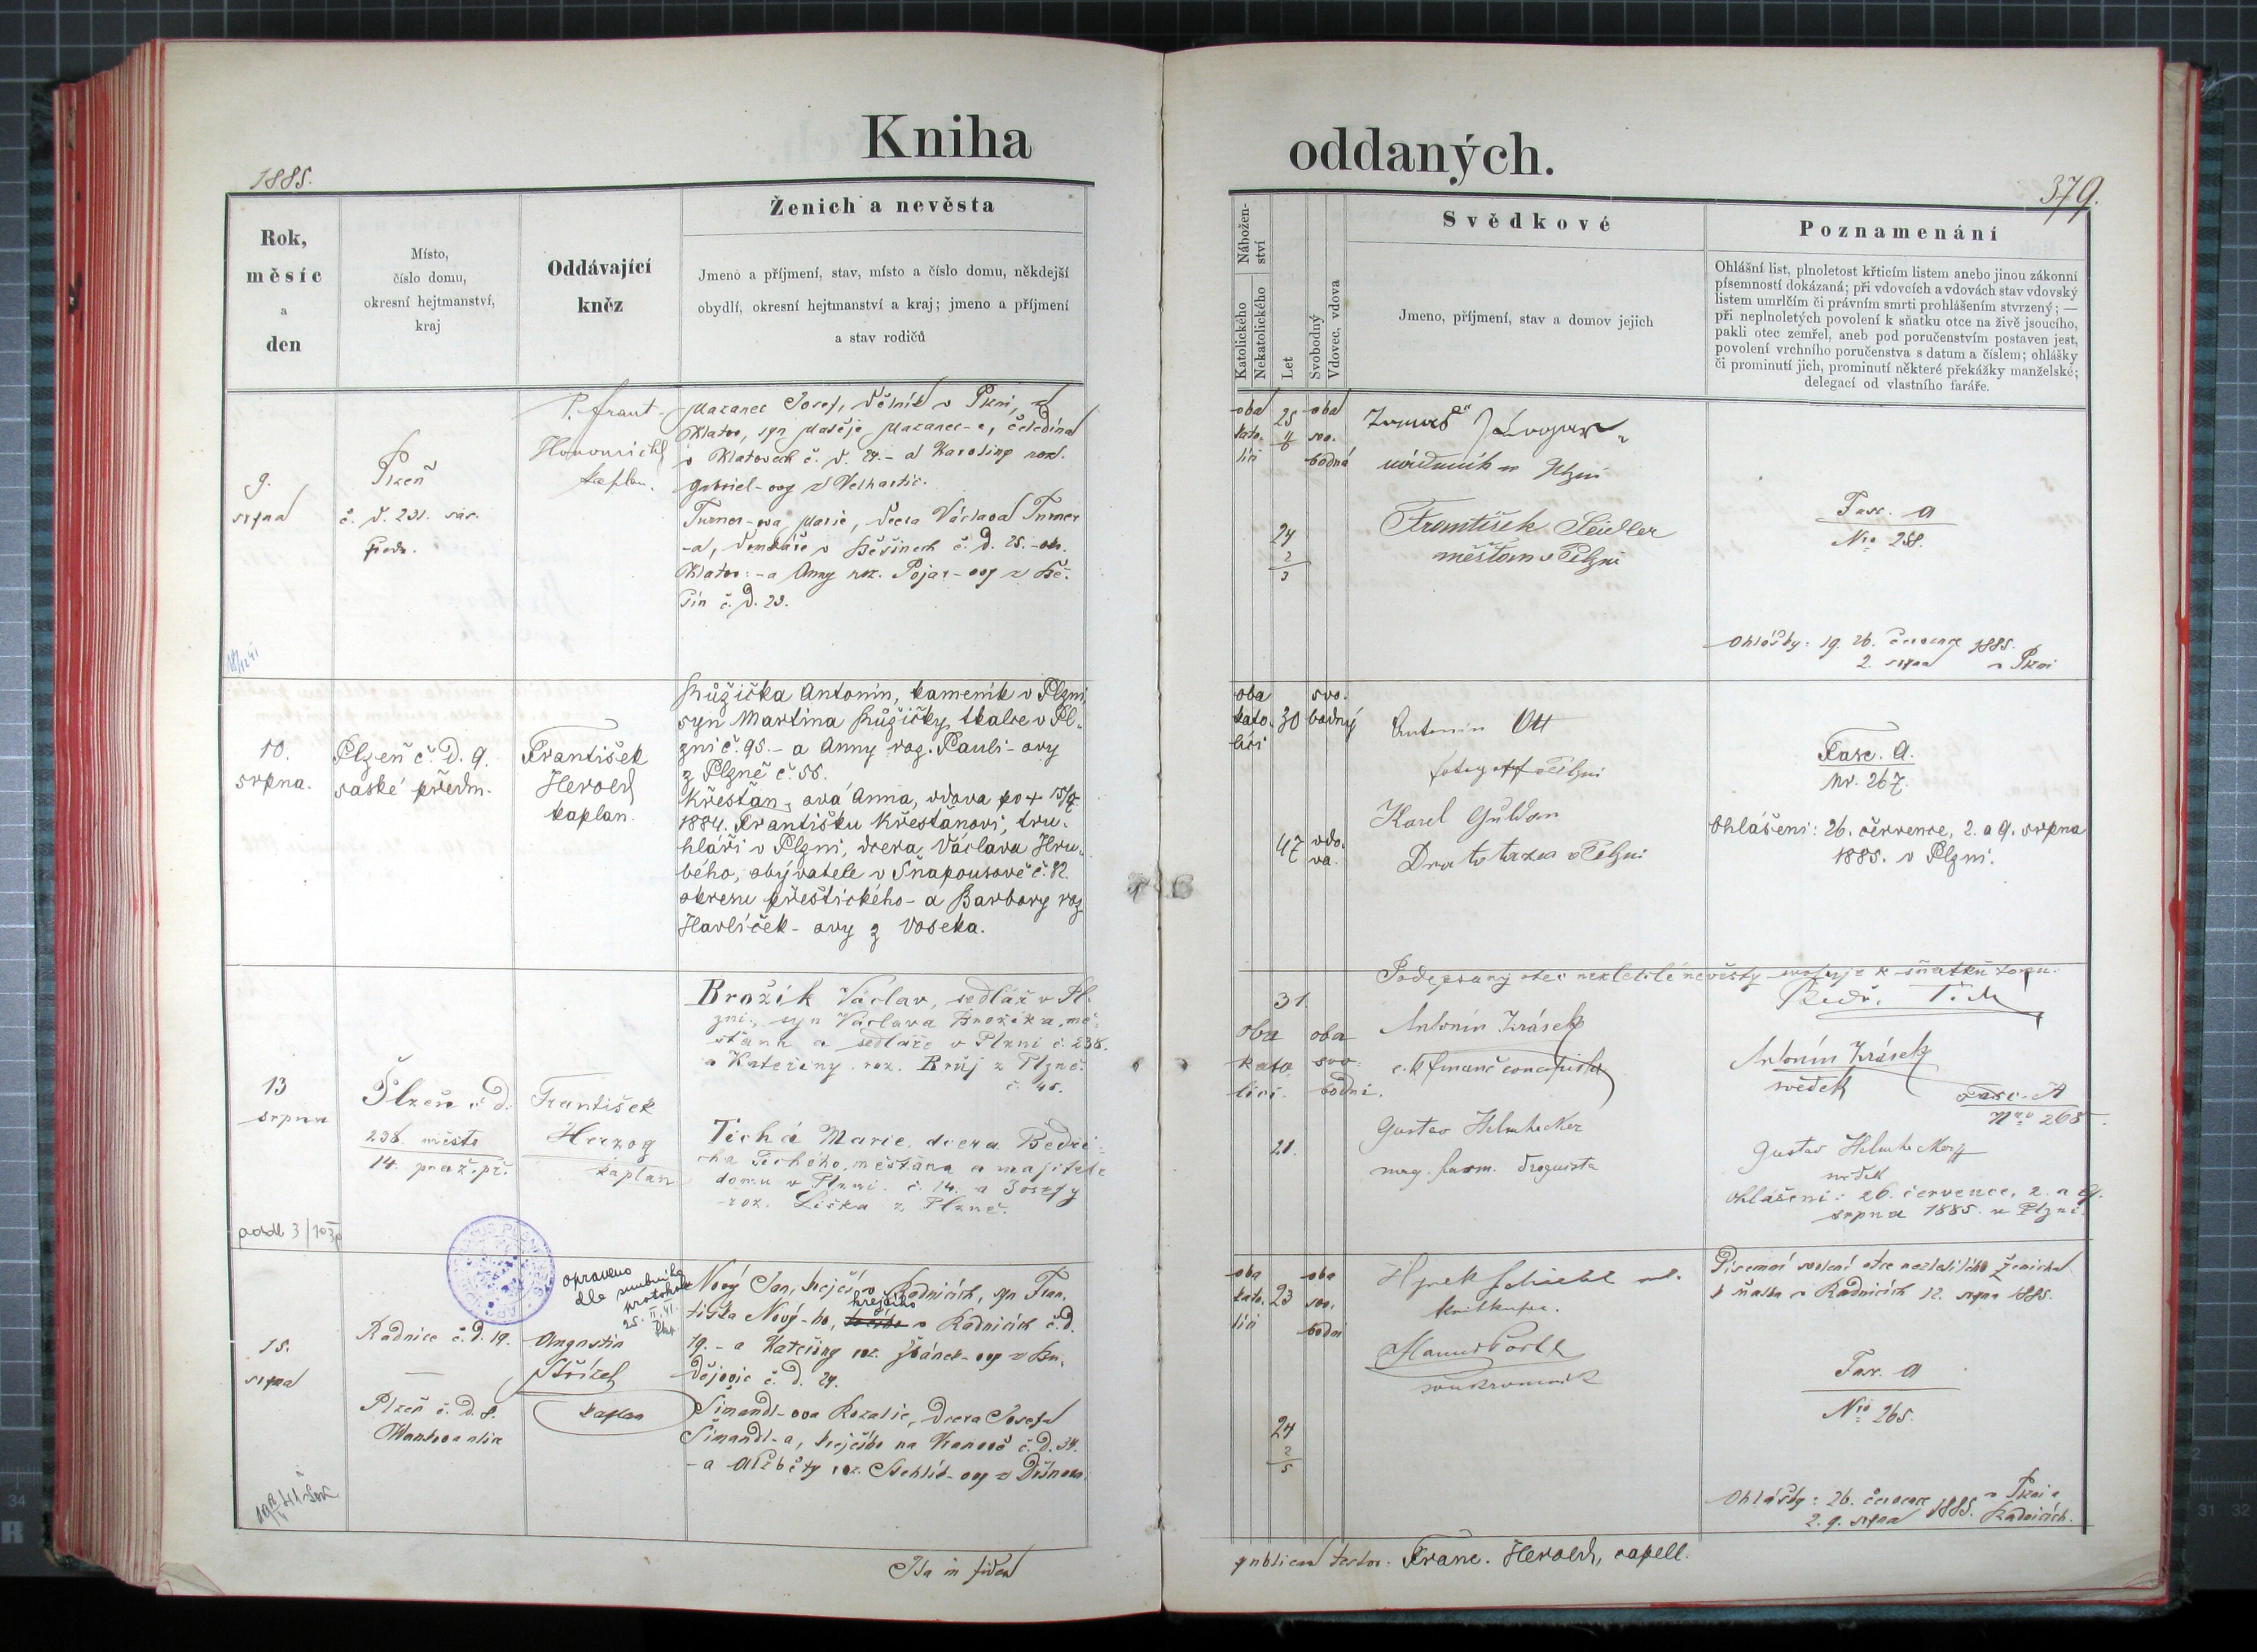 Kniha
oddaných.
1885.
379.
Rok,
měsíc
a
den
Místo,
číslo domu,
okresní hejtmanství,
kraj
Oddávající
kněz
Ženich a nevěsta
Jmeno a příjmení, stav, místo a číslo domu, někdejší
obydlí, okresní hejtmanství a kraj; jmeno a příjmení
a stav rodičů
Nábožen-
ství
Katolického
Nekatolického
Let
Svobodný
Vdovec, vdova
Svědkové
Jmeno, příjmení, stav a domov jejich
Poznamenání
Ohlášní list, plnoletost křticím listem anebo jinou zákonní
písemností dokázaná; při vdovcích a vdovách stav vdovský
listem umrlčím či právním smrti prohlášením stvrzený; —
při neplnoletých povolení k sňatku otce na živě jsoucího,
pakli otec zemřel, aneb pod poručenstvím postaven jest,
povolení vrchního poručenstva s datum a číslem; ohlášky
či prominutí jich, prominutí některé překážky manželské;
delegací od vlastního faráře.
9.
srpna
Plzeň
č. d. 231. sas.
předm.
P. Frant.
kaplan.
Mazanec Josef, dělník v Plzni, z
Klatov, syn Matěje Mazanec-e, čeledína
v Klatovech č. d. 24. - a Karoliny roz.
Gabriel-ovy z Velhartic.
Turner-ova Marie, dcera Václava Turner
-a, domkáře v Běšinech č. d. 25. - okr.
Klatov: - a Anny roz. Pojar-ovy z Bě-
šin č. d. 23.
oba
kato-
líci
25
oba
svo-
bodná
24
2
3
úředník v Plzni
František Seidler
měšťan v Plzni
Fasc. A
Nro 258.
Ohlášky: 19. 26. července 1885.
2. srpna v Plzni
10.
srpna.
Plzeň č. D. 9.
saské předm.
František
Herold
kaplan.
Růžička Antonín, kameník v Plzni,
syn Martina Růžičky, tkalce v Pl-
zni č. 95. - a Anny roz. Pauli-ovy
z Plzně č. 55.
Křesťan-ová Anna, vdova po + 15/9
1884. Františku Křesťanovi, tru-
hláři v Plzni, dcera Václava Hru-
bého, obývatele v Snapousově č. 82.
okresu přeštického - a Barbory roz.
Havlíček-ovy z Voseka.
oba
kato-
líci
30
svo-
bodný
47
vdo-
va.
Antonín Ott
fotograf v Plzni
Karel Guldan
v Plzni
Fasc. A.
Nr. 267.
Ohlášení: 26. července, 2. a 9. srpna
1885. v Plzni.
13
srpna
Plzeň č. d.
238. město
14. praž. př.
František
Herzog
kaplan
Brožík Václav, sedlář v Pl-
zni, syn Václava Brožíka, mě-
šťana a sedláře v Plzni č. 238.
a Kateřiny roz. Brůj z Plzně
č. 45.
Tichá Marie, dcera Bedři-
cha Tichého, měšťana a majitele
domu v Plzni č. 14. a Josefy
roz. Liška z Plzně.
31
oba
kato-
líci.
oba
svo-
bodní.
21.
Podepsaný otec nezletilé nevěsty svoluje k sňatku tomu.
Antonín Krásek
c. k. finanč. concipista
Gustav Helmhecker
mag. farm. droguista
Antonín Krásek
svědek
Fasc. A
Nro 268
Gustav Helmhecker
svědek
Ohlášení: 26. července, 2. a 9.
srpna 1885. v Plzni.
15.
srpna
Radnice č. d. 19.
—
Plzeň č. d. 8.
Augustin
Střízek
kaplan
opraveno
dle snubního
protokolu
25. II. 41.
Nový Jan, krejčí v Radnicích, syn Fran-
krejčího
tiška Nový-ho, v Radnicích č. d.
19. - a Kateřiny roz. Žbánek-ovy z Bu-
dějovic č. d. 24.
Šimandl-ova Rozalie, dcera Josefa
Šimandl-a, krejčího na Vranově č. d. 34.
- a Alžběty roz. Stehlík-ovy z
oba
kato-
líci
23
oba
svo-
bodní
24
2
5
soukromník
Písemní svolení otce nezletilého ženicha
v Radnicích 12. srpna 1885.
Fasc. A
Nro 265.
Ohlášky: 26. července 1885. v Plzni a
2. 9. srpna Radnicích.
Ita in fidem
publicam testor: Franc. Herold, capell.